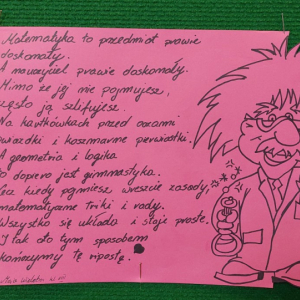 Matematyka to przedmiot prawie
doskonały.
A nauczyciel prawie doskonały.
Mimo że jej nie pojmujesz,
często ją szlifujesz.
Na kartkówkach przed oczami
gwiazdki i koszmarne pierwiastki.
A geometria i logika
to dopiero jest gimnastyka.
Lecz kiedy pojmiesz wreszcie zasady,
matematyczne triki i rady.
Wszystko się układa i staje proste.
I tak oto tym sposobem
kończymy tę ripostę.